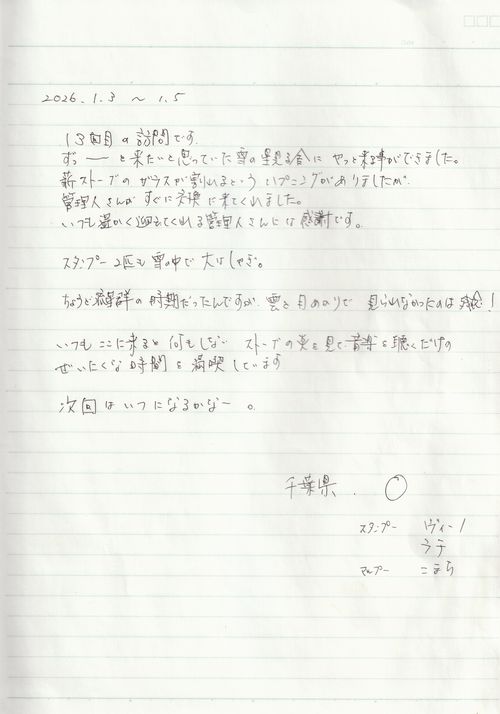 2026.1.3 〜 1.5
13回目の訪問です.
ずっ ー と来たいと思っていた雪の星見る舎に やっと来る事ができました。
薪ストーブの ガラスが割れるという ハプニングがありましたが
管理人さんが すぐに交換に来てくれました。
いつも温かく迎えてくれる管理人さんには 感謝です。
スタンプー 2匹も 雪の中で 大はしゃぎ。
ちょうど流星群の 時期だったんですが、雲と月あかりで 見られなかったのは 残念!
いつも ここに来ると 何もしない ストーブの炎を見て 音楽を聴くだけの
ぜいたくな時間を 満喫しています
次回は いつに なるかなー 。
千葉県 . ○
スタンプー ヴィーノ
ラテ
マルプー こまち